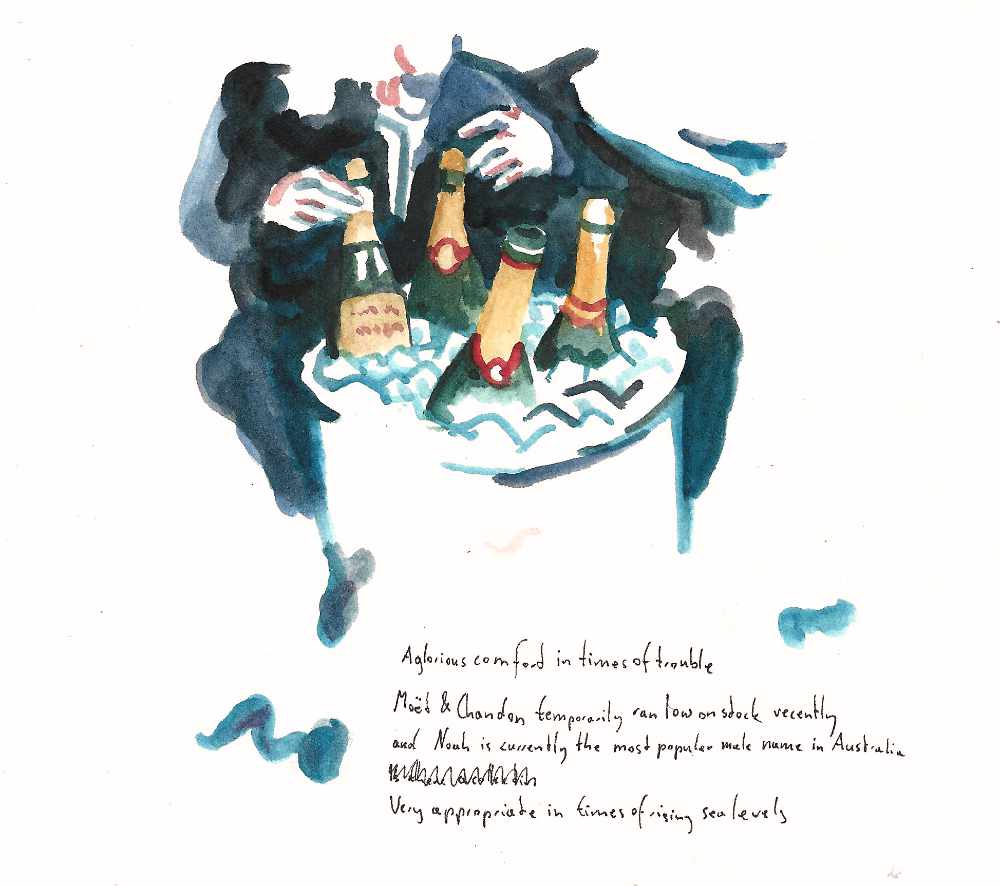 A glorious comford in times of trouble
Moët & Chandon temporarily ran low on stock recently
and Noah is currently the most popular male name in Australia
Very appropriate in times of rising sea levels